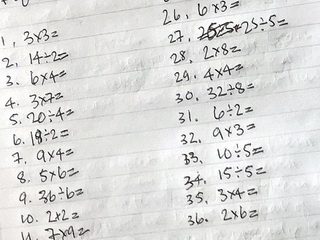 1, 3x3=
2, 14÷2=
3. 6x4=
4. 3x7=
5. 20÷4=
6. 18÷2=
7. 9x4=
8. 5x6=
9. 36÷6=
10. 2x2=
11. 7x9=
26, 6x3=
27. 25÷5=
28. 2x8=
29. 4x4=
30. 32÷8=
31. 6÷2=
32. 9x3=
33. 10÷5=
34. 15÷5=
35. 3x4=
36. 2x6=